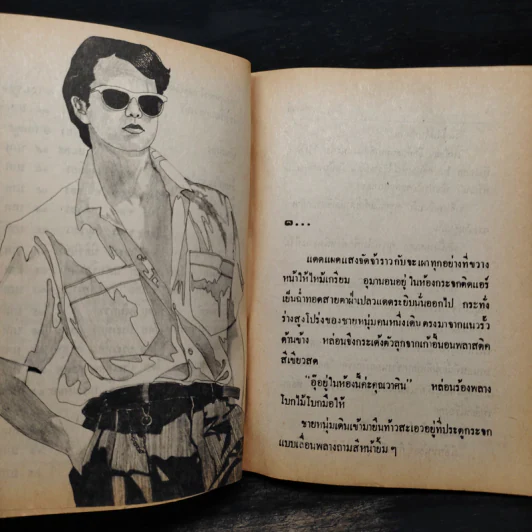 ๑...
แดดแผดแสงจัดจ้าราวกับจะเผาทุกอย่างที่ขวาง
หน้าให้ไหม้เกรียม อุมานอนอยู่ในห้องกระจกติดแอร์
เย็นฉ่ำทอดสายตาฝ่าเปลวแดดระยิบนั่นออกไป กระทั่ง
ร่างสูงโปร่งของชายหนุ่มคนหนึ่งเดินตรงมาจากแนวรั้ว
ด้านข้าง หล่อนจึงกระเด้งตัวลุกจากเก้าอี้นอนพลาสติค
สีเขียวสด
"อุ๊อยู่ในห้องนี้ค่ะคุณวาศิน" หล่อนร้องพลาง
โบกไม้โบกมือให้
ชายหนุ่มเดินเข้ามายืนท้าวสะเอวอยู่ที่ประตูกระจก
แบบเลื่อนพลางถามสีหน้ายิ้ม ๆ